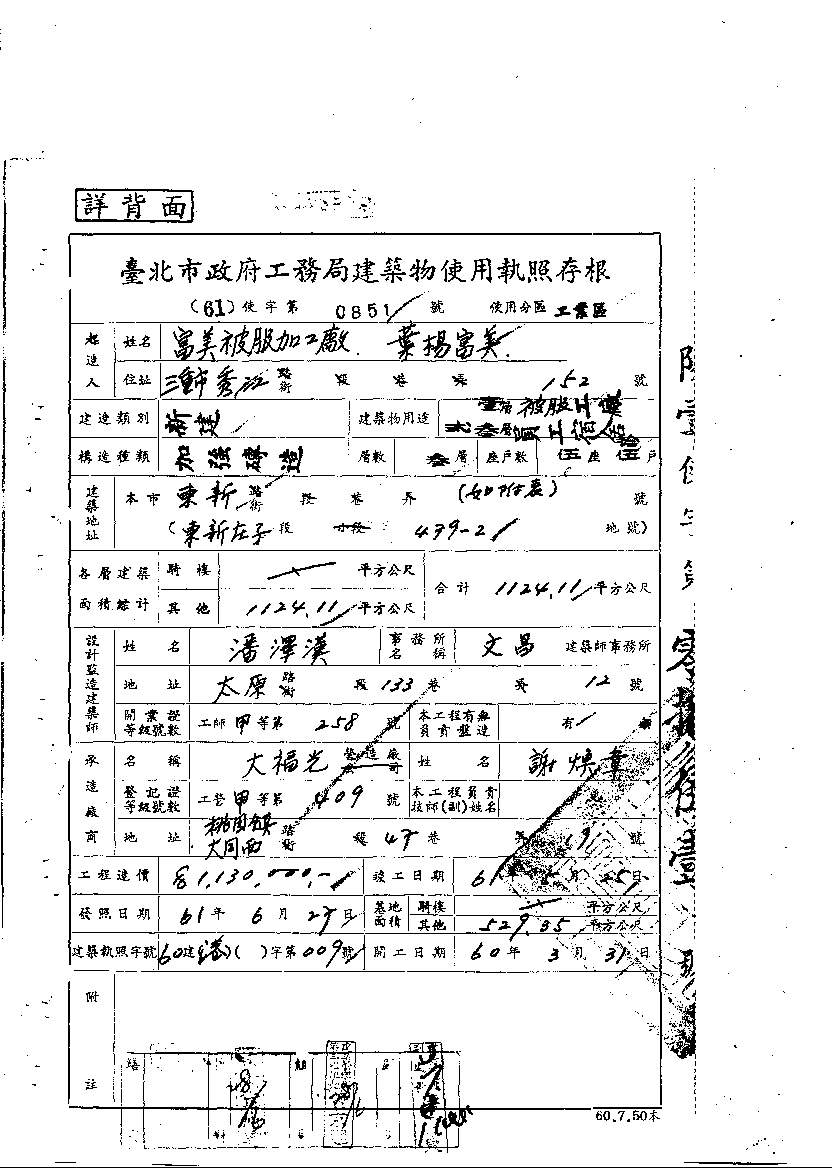 詳背面
臺北市政府工務局建築物使用執照存根
(61)使字第 0851 號 使用分區 工業區
起造人 姓名 富美被服加工廠. 葉楊富美.
住址 三重市秀江 路街 段 巷 弄 152 號
建造類別 新建 建築物用途 壹層被服工廠
層員工宿舍
構造種類 加強磚造 層數 叁層 座戶數 座 戶
建築地址 本市 東新 路街 段 巷 弄 (如附表) 號
(東新庄子段 小段 439-21 地號)
各層建築面積總計 騎樓 平方公尺 合計 1124.11 平方公尺
其他 1124.11 平方公尺
設計監造建築師 姓名 潘澤漢 事務所名稱 文昌 建築師事務所
地址 太原 路街 段 133 巷 弄 12 號
開業證等級號數 工師甲等第 258 號 本工程有無負責監造 有
承造廠商 名稱 大福光 營造廠公司 姓名 謝煥章
登記證等級號數 工營甲等第 409 號 本工程負責技師(副)姓名
地址 桃園鎮大同西 路街 段 47 巷 弄 19 號
工程造價 1,130,000,- 竣工日期 61年 月 25日
發照日期 61年 6月 27日 基地面積 騎樓 平方公尺
其他 529.35 平方公尺
建築執照字號 60建( )( )字第009號 開工日期 60年 3月 31日
附註
60.7.50本